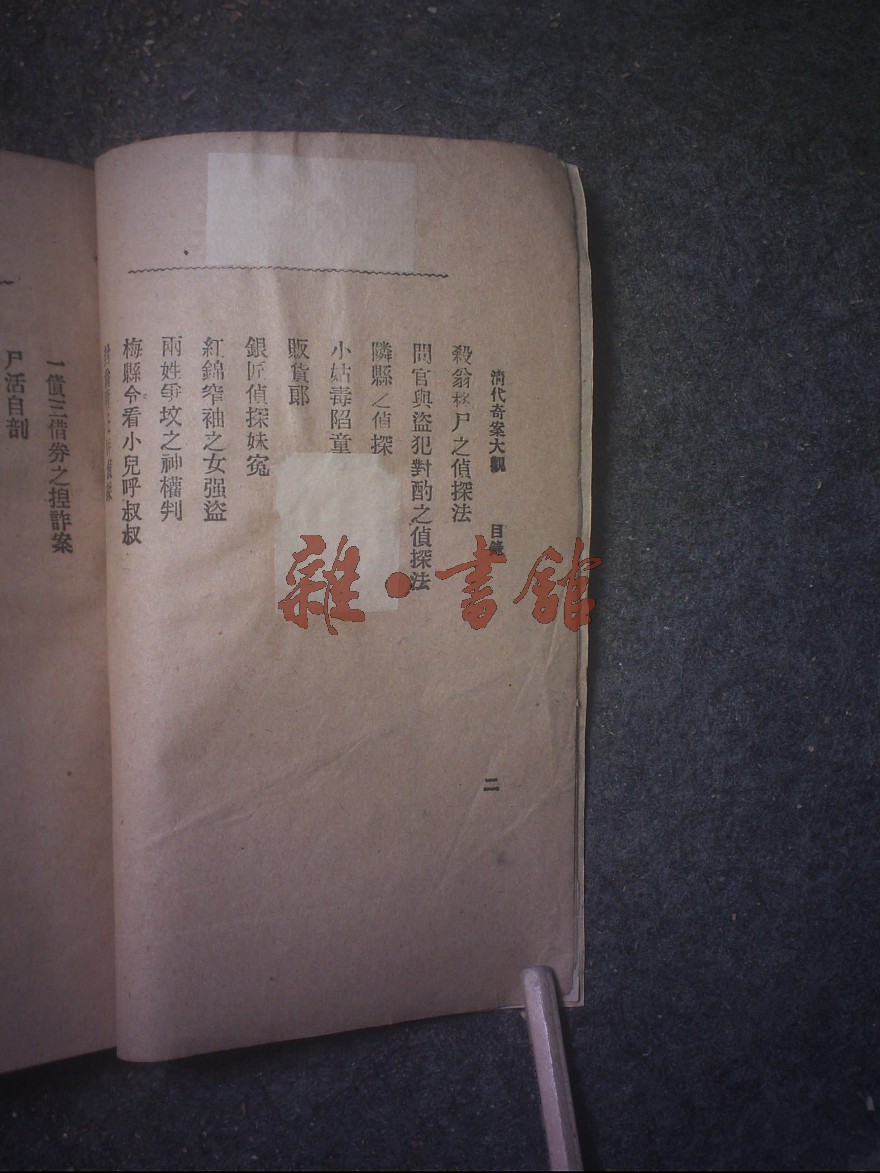 清代奇案大觀 目錄 二
殺翁移尸之偵探法
問官與盜犯對酌之偵探法
隣縣之偵探
小姑毒陷童
販貨郎
銀匠偵探妹寃
紅錦窄袖之女强盜
兩姓爭坟之神權判
梅縣令看小兒呼叔叔
一債三借劵之揑詐案
尸活自剖
雜·書館